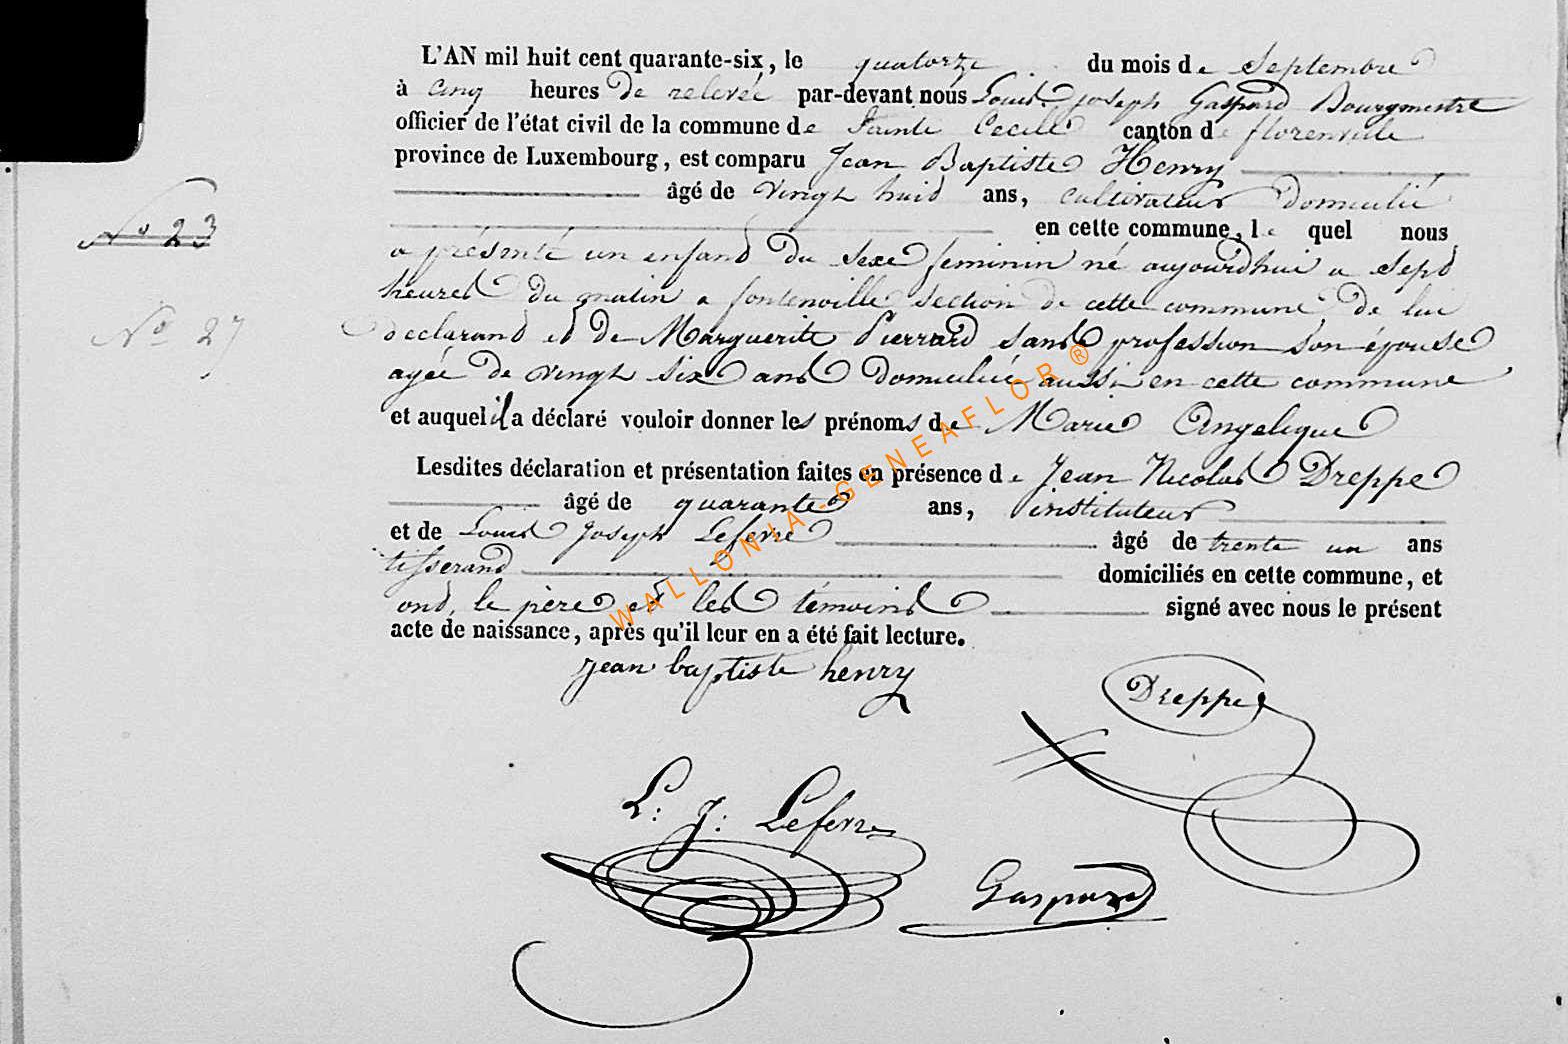 L'AN mil huit cent quarante-six, le quatorze du mois de Septembre
à cinq heures de relevée par-devant nous Louis joseph Gaspard Bourgmestre
officier de l'état civil de la commune de Sainte Cecile canton de florenville
province de Luxembourg, est comparu Jean Baptiste Henry
N° 23
âgé de vingt huid ans, cultivateur domicilié
en cette commune, le quel nous
a présenté un enfand du sexe feminin né aujourdhui a sept
heures du matin a fontenoille section de cette commune, de lui
N° 27
declarand et de Marguerite Pierrard sans profession son épouse
agée de vingt six ans domiciliée aussi en cette commune
et auquel il a déclaré vouloir donner les prénoms de Marie Angelique
Lesdites déclaration et présentation faites en présence de Jean Nicolas Dreppe
âgé de quarante ans, instituteur
et de Louis Joseph Lefevre âgé de trente un ans
tisserand domiciliés en cette commune, et
ond, le père et les témoins signé avec nous le présent
acte de naissance, après qu'il leur en a été fait lecture.
jean baptiste henry
Dreppe
L: J: Lefevre
Gaspard
WALLONIA-GENEAFLOR ®